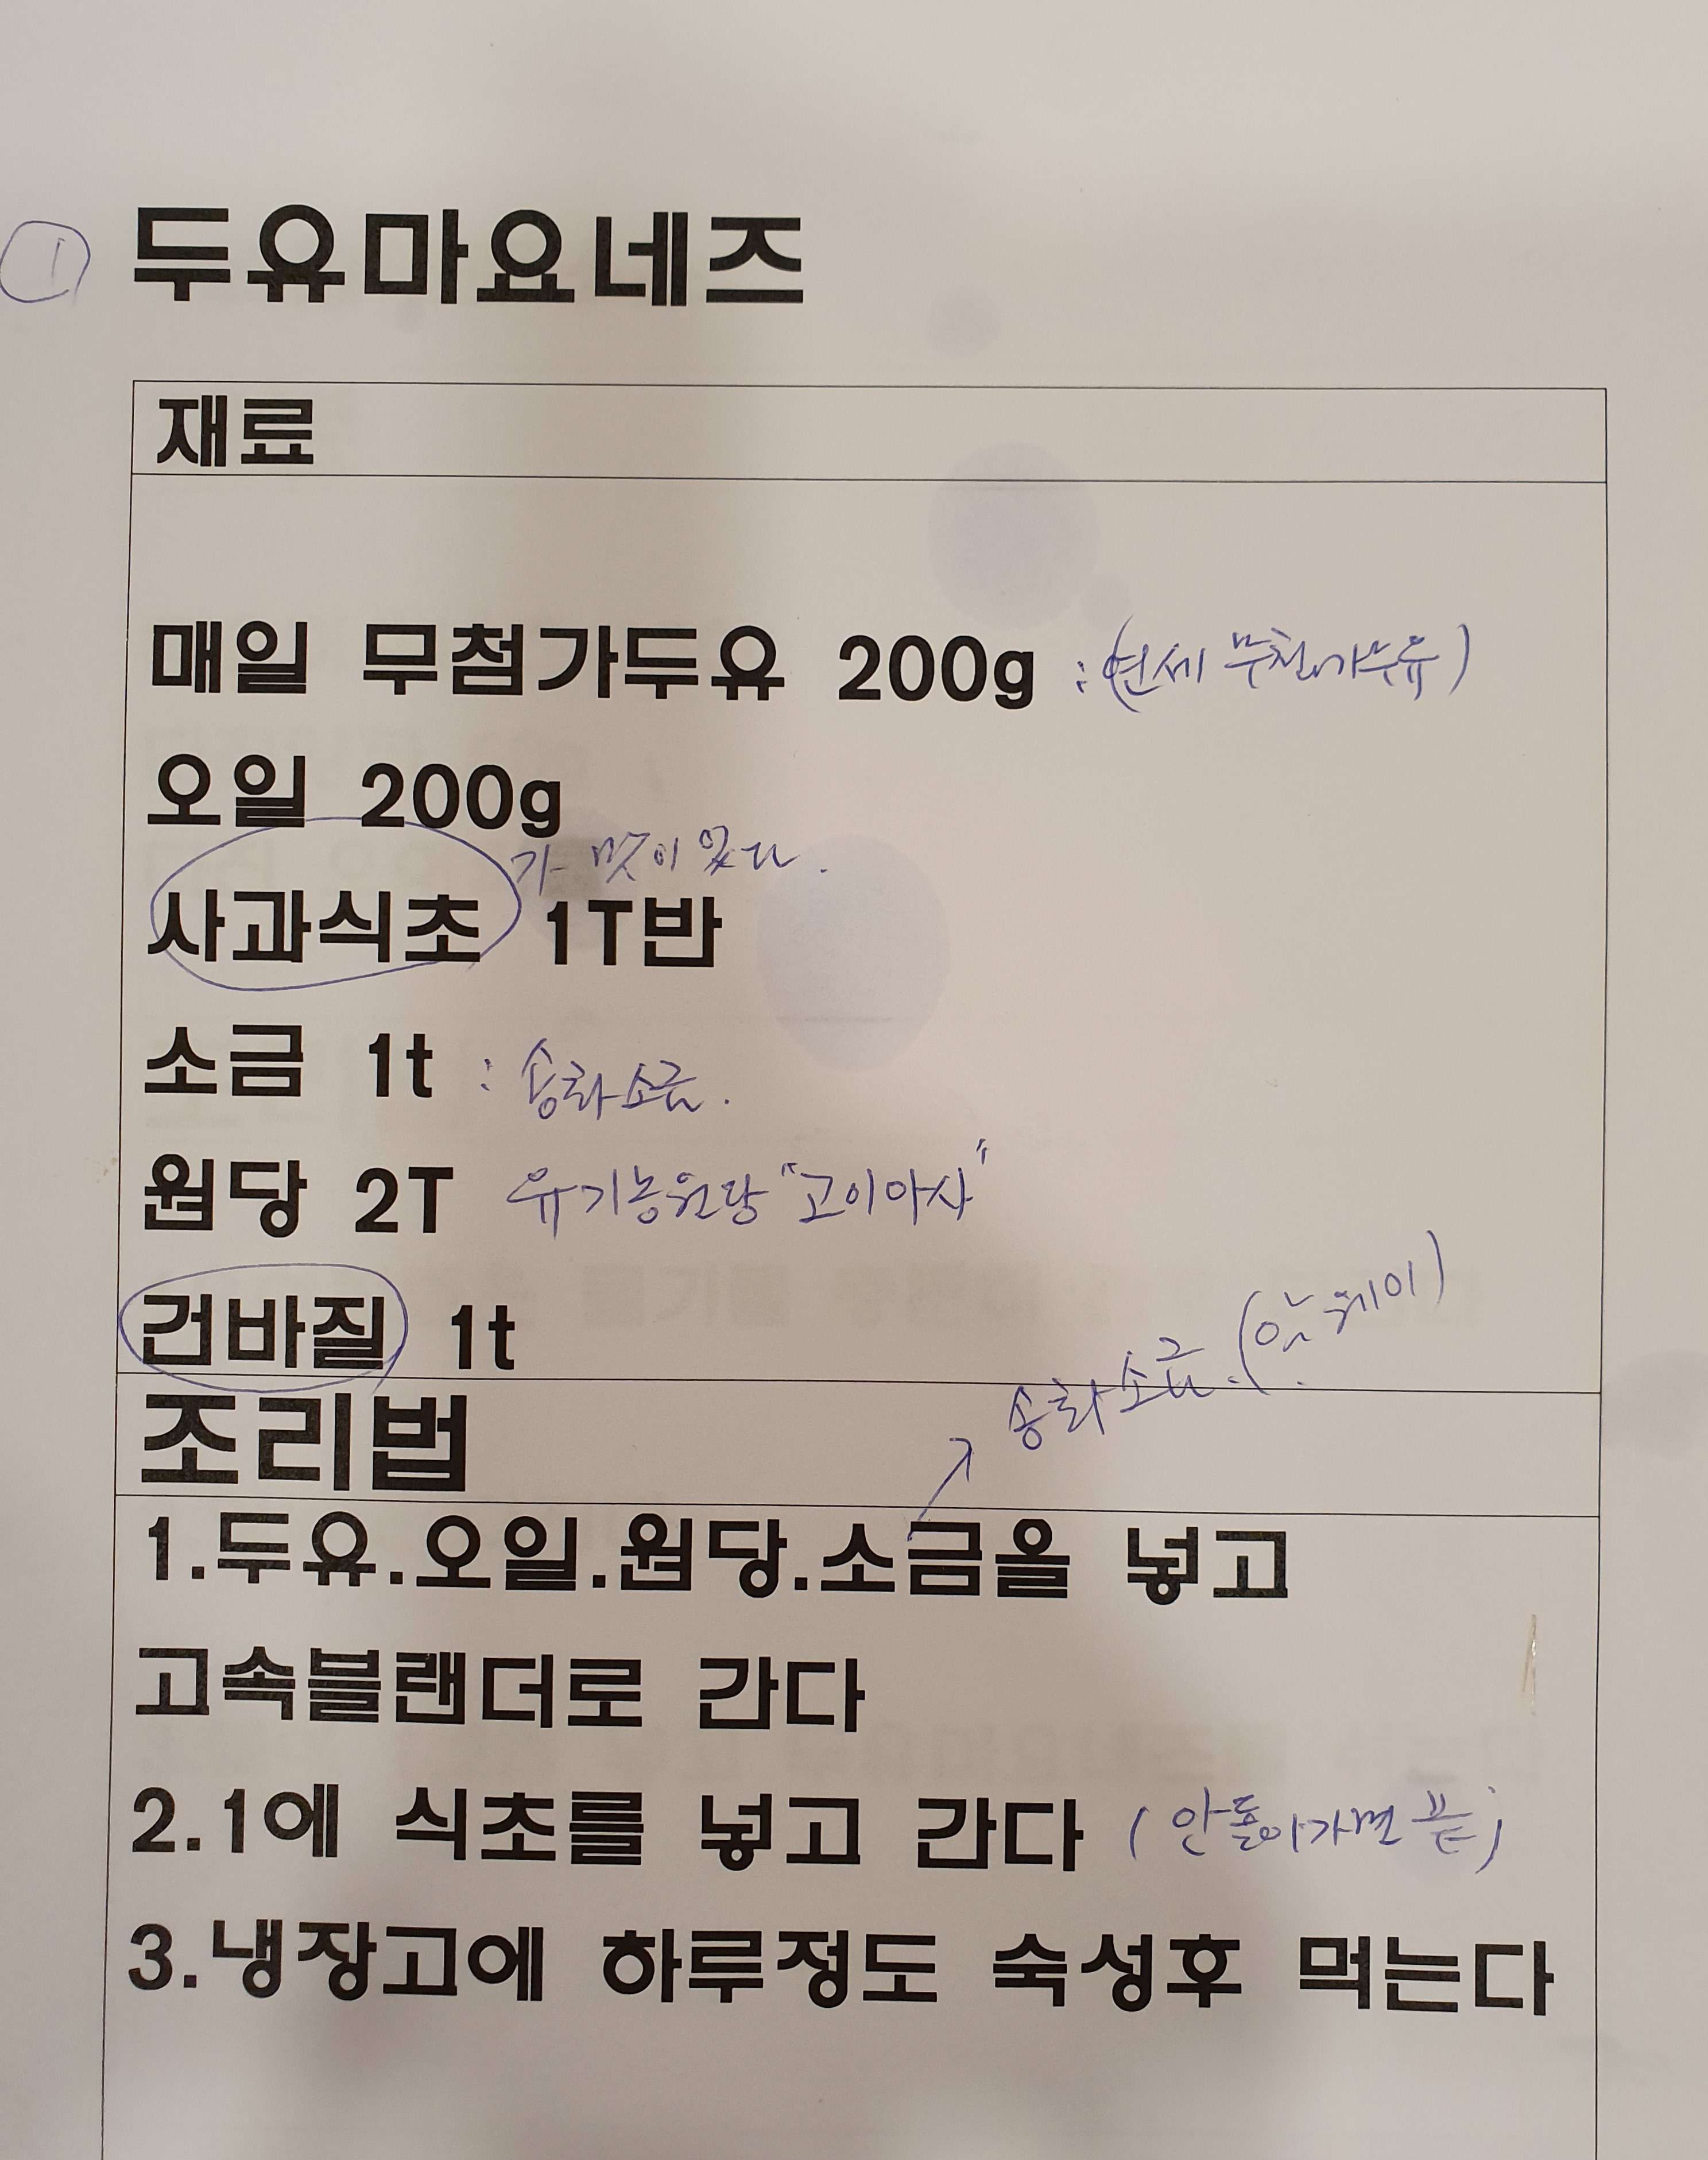 ① 두유마요네즈
재료
매일 무첨가두유 200g : (연세 무첨가두유)
오일 200g
가 맛이 있다.
사과식초 1T반
소금 1t : 송화소금.
원당 2T 유기농원당 "고이아사"
건바질 1t
송화소금. (암웨이)
조리법
1.두유.오일.원당.소금을 넣고
고속블랜더로 간다
2.1에 식초를 넣고 간다 (안돌아가면 끝)
3.냉장고에 하루정도 숙성후 먹는다